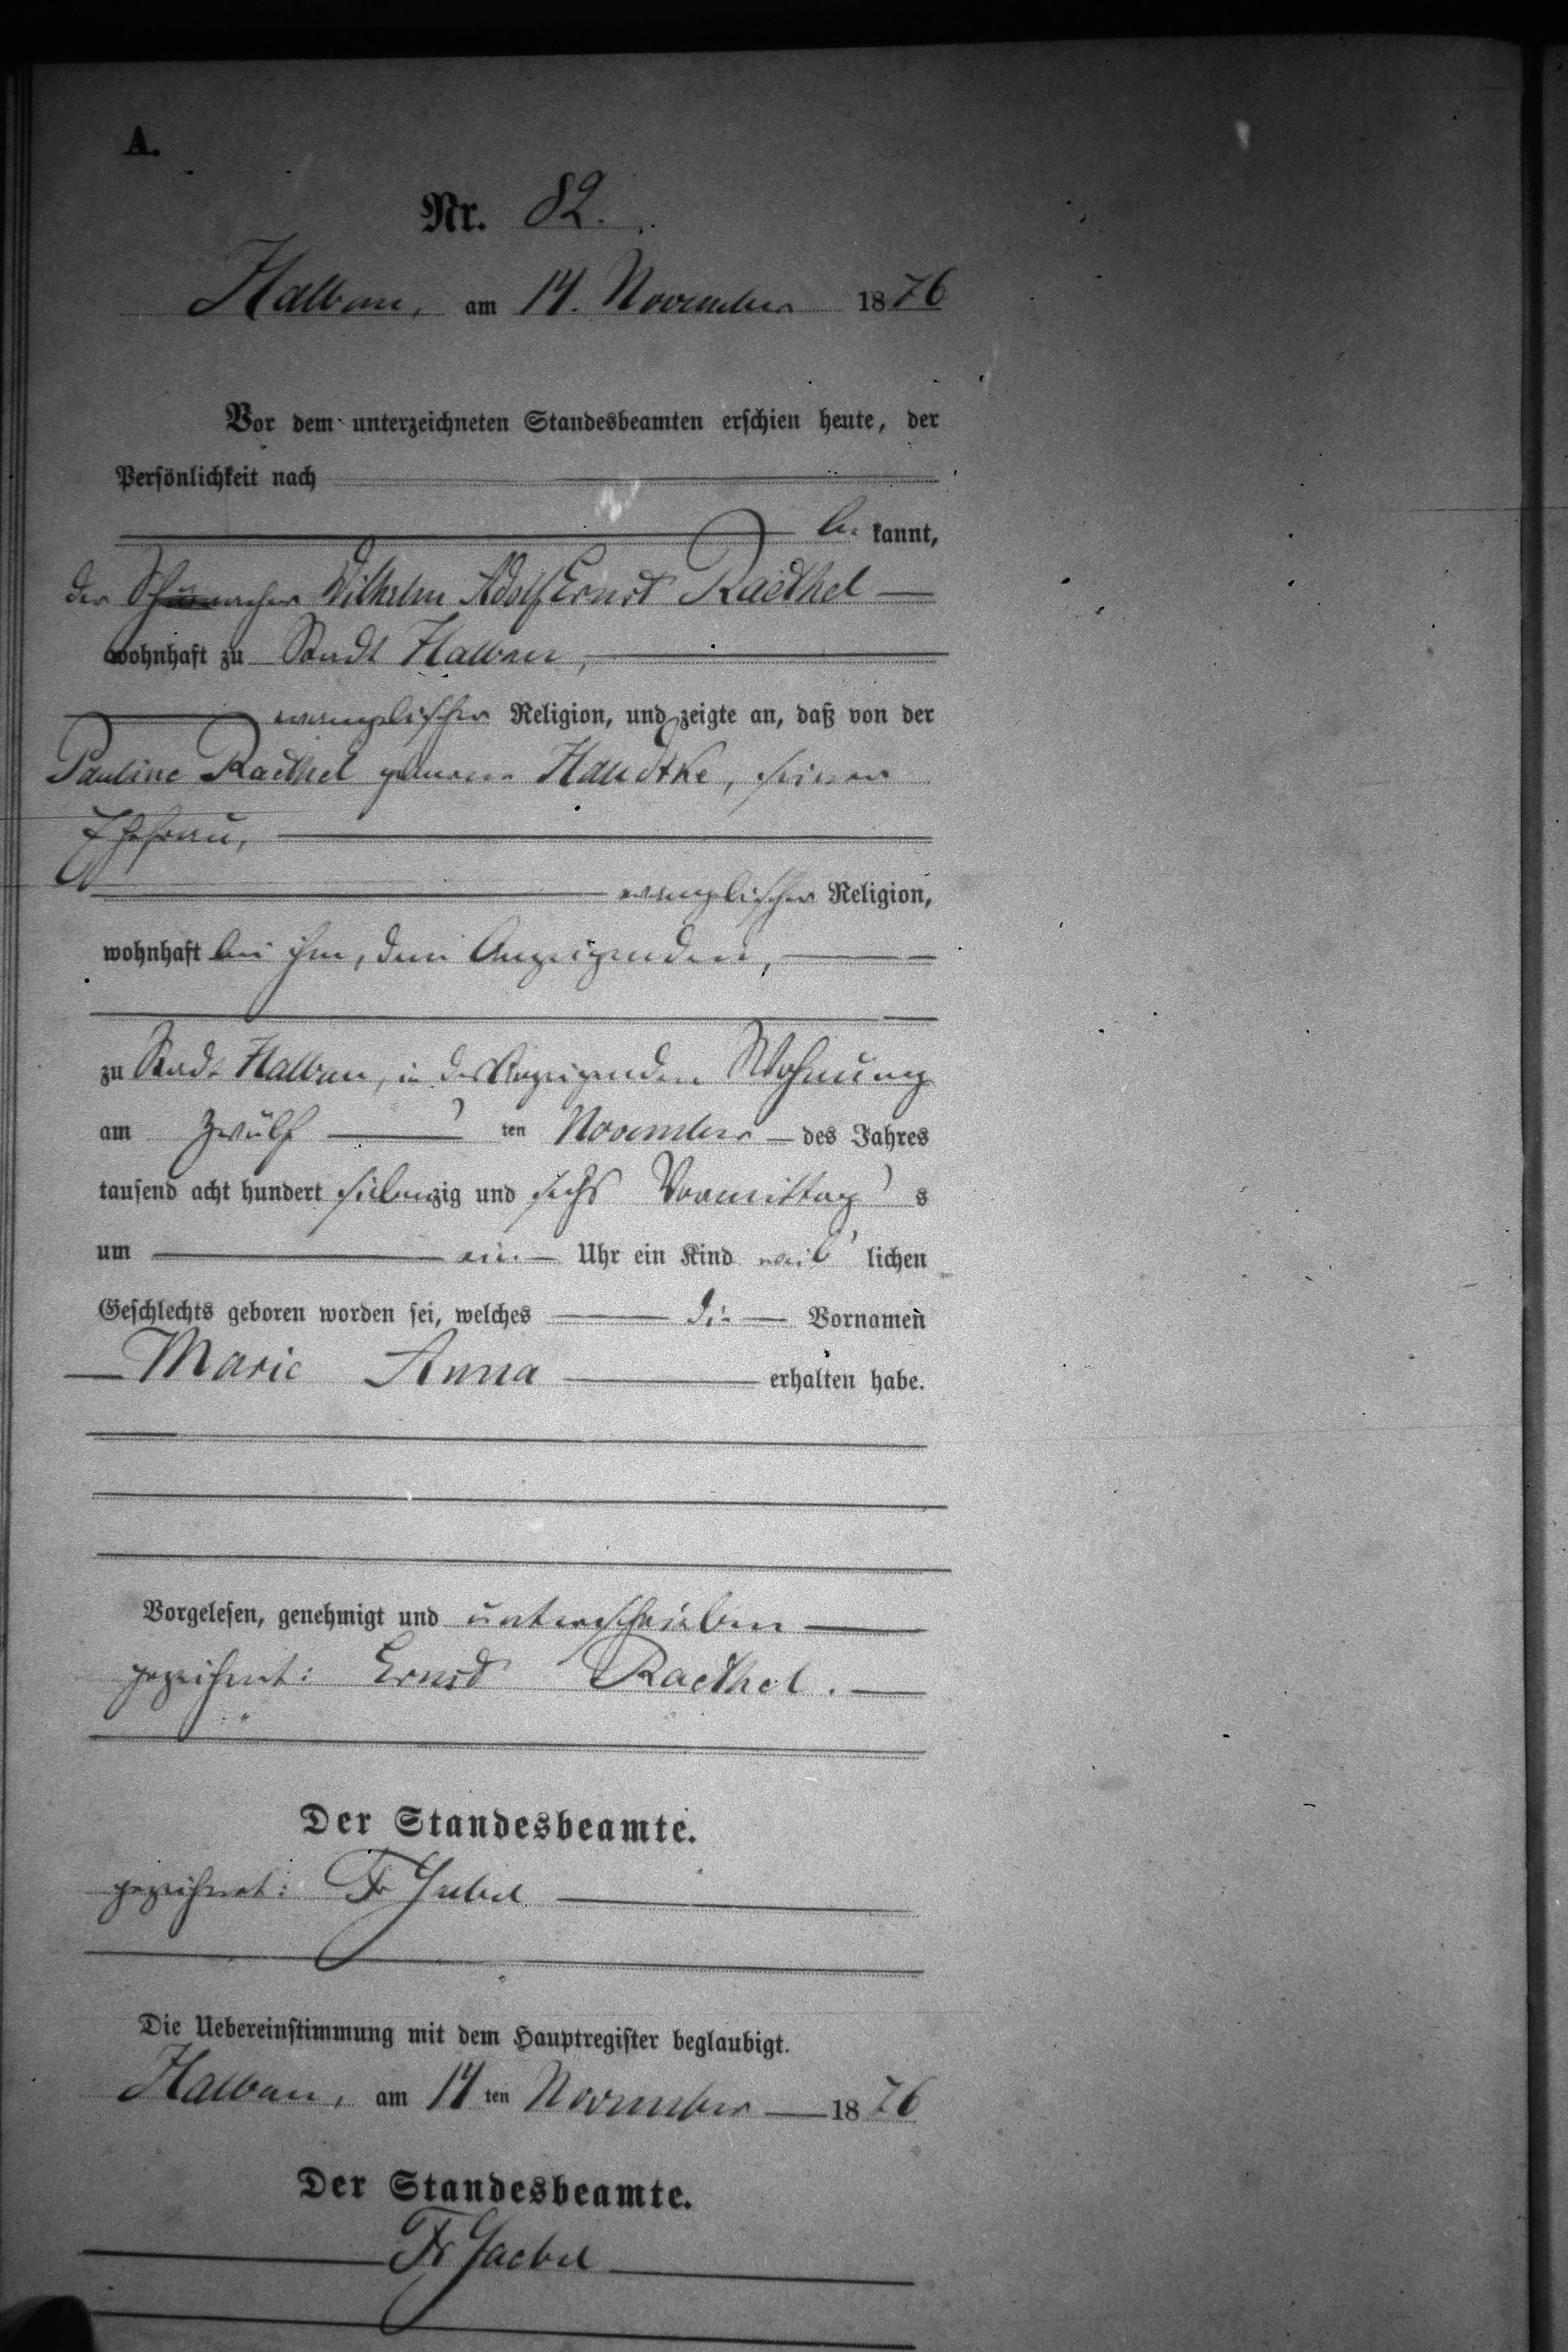 A.
Nr. 82.
Halbau, am 14. November 1876
Vor dem unterzeichneten Standesbeamten erschien heute, der
Persönlichkeit nach
be kannt,
der Schumacher Wilhelm Adolf Ernst Raethel
wohnhaft zu Stadt Halbau,
evangelischer Religion, und zeigte an, daß von der
Pauline Raethel geborene Handtke, seiner
Ehefrau,
evangelischer Religion,
wohnhaft bei ihm, dem Anzeigenden,
zu Stadt Halbau, in des Anzeigenden Wohnung
am zwölf ten November des Jahres
tausend acht hundert siebenzig und sechs Vormittag s
um ein Uhr ein Kind weib lichen
Geschlechts geboren worden sei, welches die Vornamen
Marie Anna erhalten habe.
Vorgelesen, genehmigt und unterschrieben
gezeichnet: Ernst Raethel.
Der Standesbeamte.
gezeichnet: Fr
Die Uebereinstimmung mit dem Hauptregister beglaubigt.
Halbau, am 14 ten November 1876
Der Standesbeamte.
Fr